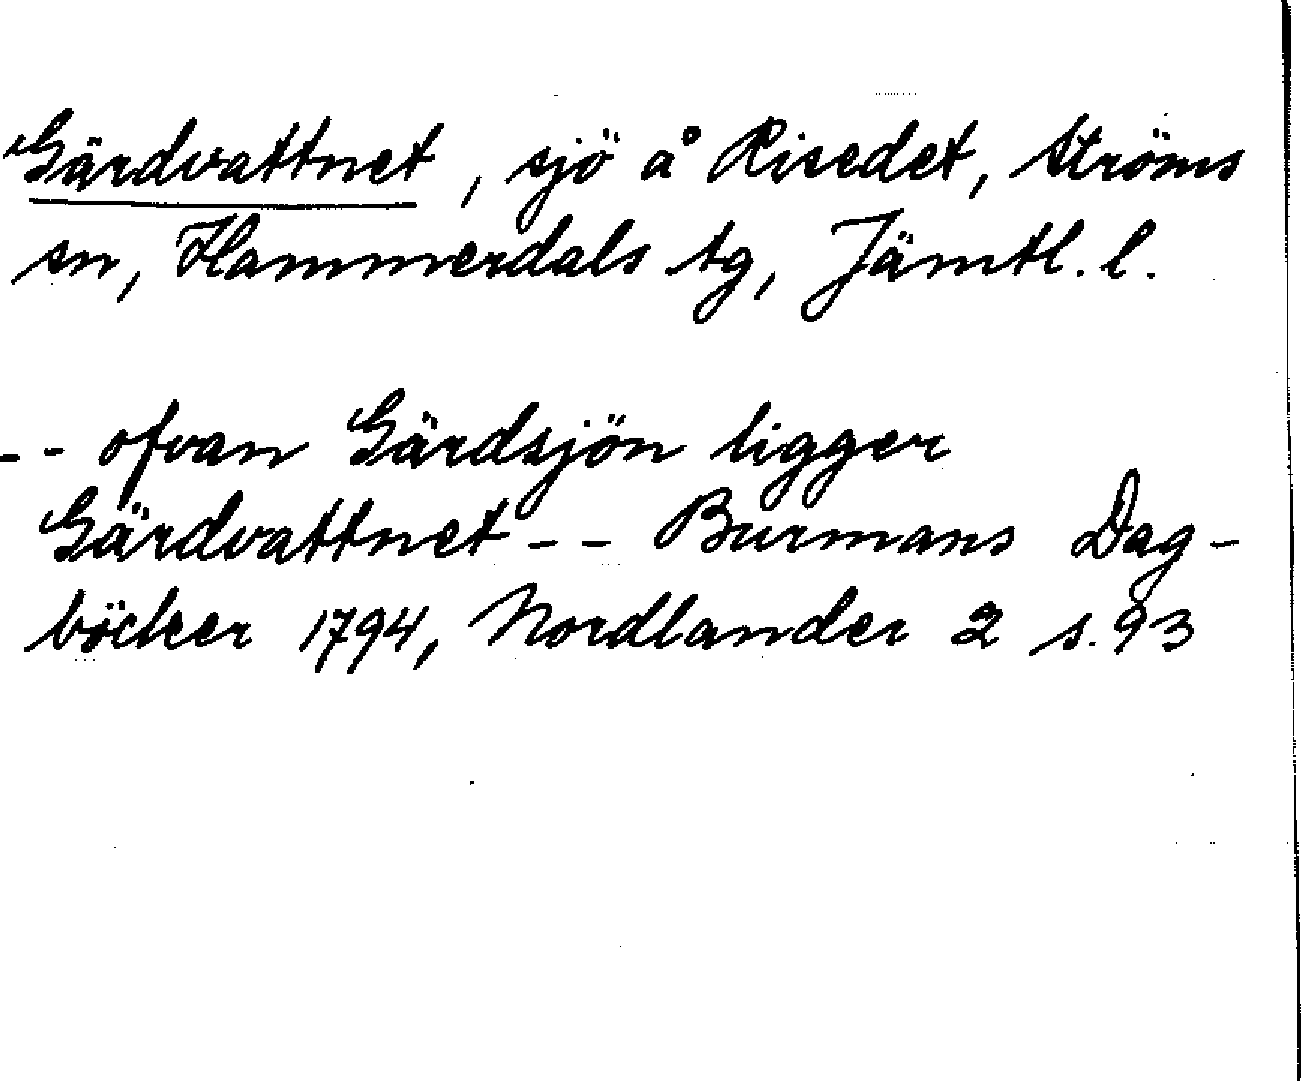 Gärdvattnet, sjö å Risedet, Ströms
sn, Hammerdals tg, Jämtl. l.
-- ofvan Gärdsjön ligger
Gärdvattnet -- Burmans Dag-
böcker 1794, Nordlander 2 s. 93